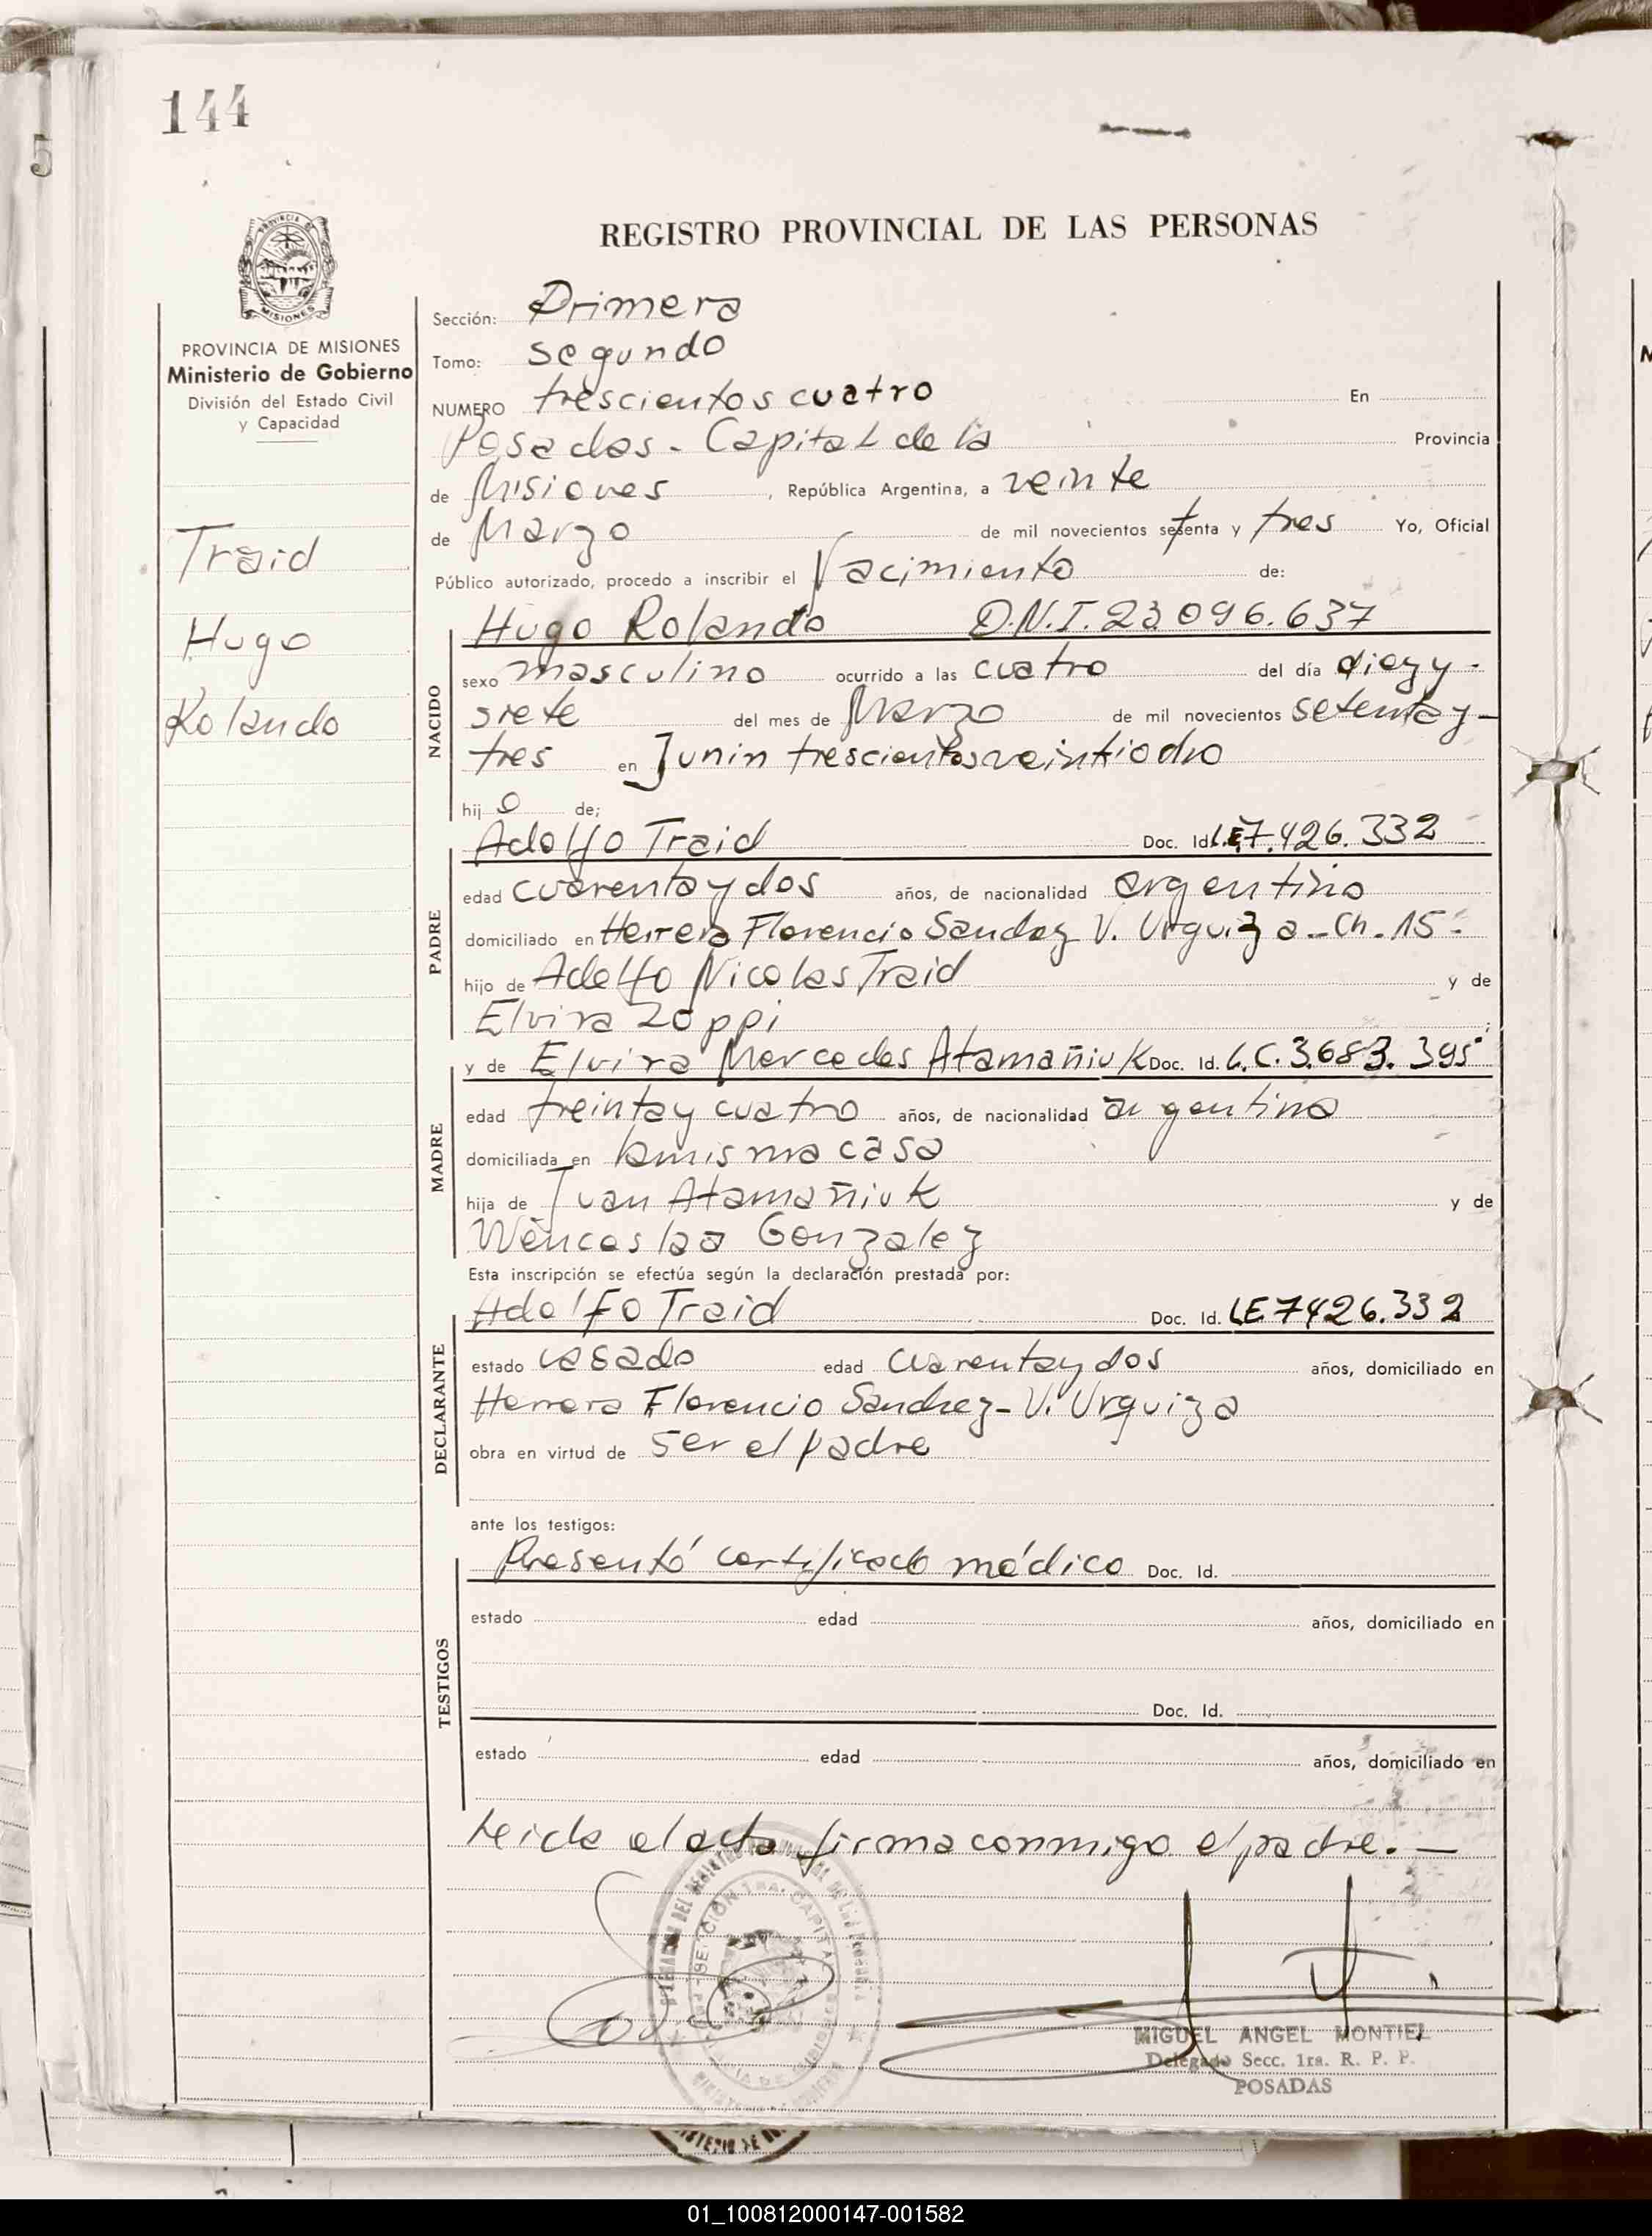 144
5
REGISTRO PROVINCIAL DE LAS PERSONAS
PROVINCIA DE
MISIONES
PROVINCIA DE MISIONES
Ministerio de Gobierno
División del Estado Civil
y Capacidad
Traid
Hugo
Rolando
Sección: Primera
Tomo: segundo
NUMERO trescientos cuatro En
Posadas - Capital de la Provincia
de Misiones, República Argentina, a veinte
de Marzo de mil novecientos setenta y tres Yo, Oficial
Público autorizado, procedo a inscribir el Nacimiento de:
NACIDO
Hugo Rolando D.N.I. 23 096.637
sexo masculino ocurrido a las cuatro del día diez y -
siete del mes de Marzo de mil novecientos setenta y -
tres en Junin trescientos veintiocho
hij o de;
PADRE
Adolfo Traid Doc. Id. L.E. 7.426.332
edad cuarenta y dos años, de nacionalidad argentino
domiciliado en Herrera Florencio Sanchez V. Urquiza - Ch. 15 -
hijo de Adolfo Nicolas Traid y de
Elvira Zoppi
MADRE
y de Elvira Mercedes Atamañiuk Doc. Id. L.C. 3.683.395
edad treinta y cuatro años, de nacionalidad argentina
domiciliada en la misma casa
hija de Juan Atamañiuk y de
Wenceslaa Gonzalez
Esta inscripción se efectúa según la declaración prestada por:
DECLARANTE
Adolfo Traid Doc. Id. LE 7426.332
estado casado edad cuarenta y dos años, domiciliado en
Herrera Florencio Sanchez - V. Urquiza
obra en virtud de ser el padre
ante los testigos:
TESTIGOS
Presentó certificado médico Doc. Id.
estado edad años, domiciliado en
Doc. Id.
estado edad años, domiciliado en
Leida el acta firma conmigo el padre. -
MIGUEL ANGEL MONTIEL
Delegado Secc. 1ra. R. P. P.
POSADAS
01_100812000147-001582